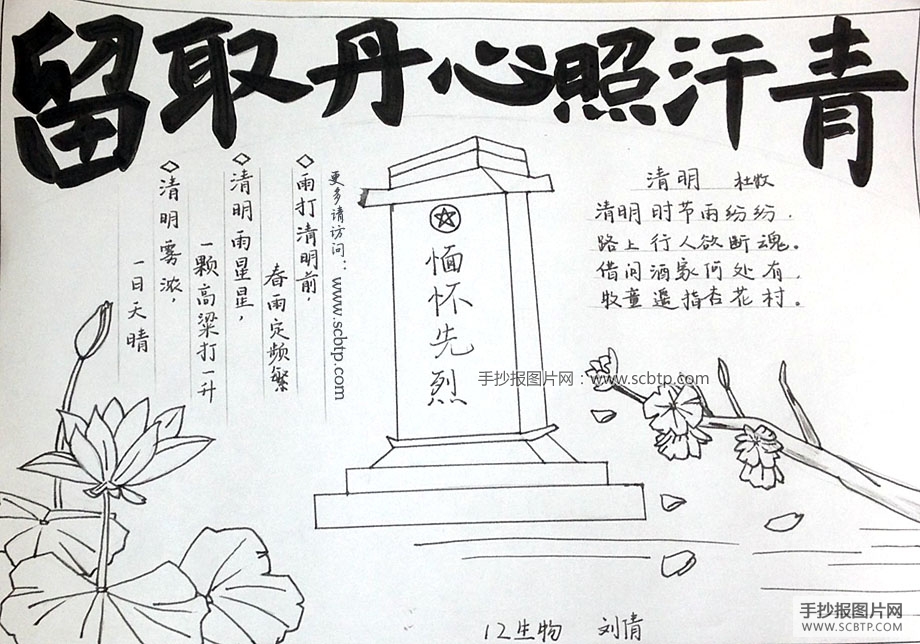 留取丹心照汗青
清明 杜牧
清明时节雨纷纷.
路上行人欲断魂。
借问酒家何处有.
牧童遥指杏花村。
缅怀先烈
更多请访问：www.scbtp.com
雨打清明前，
春雨定频繁
清明雨星星，
一颗高粱打一升
清明雾浓，
一日天晴
手抄报图片网：www.scbtp.com
12生物 刘倩
手抄报图片网
WWW.SCBTP.COM